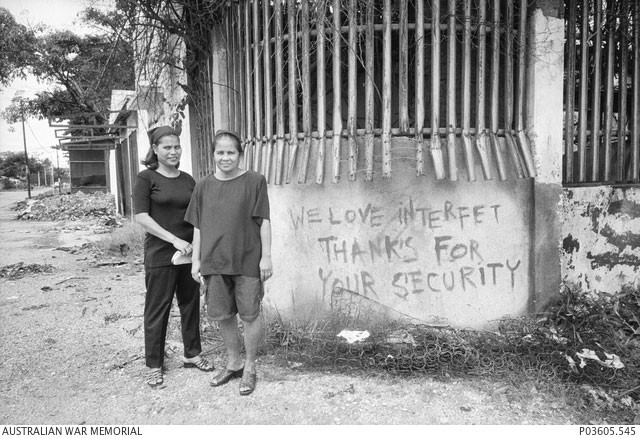 WE LOVE INTERFET
THANK'S FOR
YOUR SECURITY
AUSTRALIAN WAR MEMORIAL
P03605.545